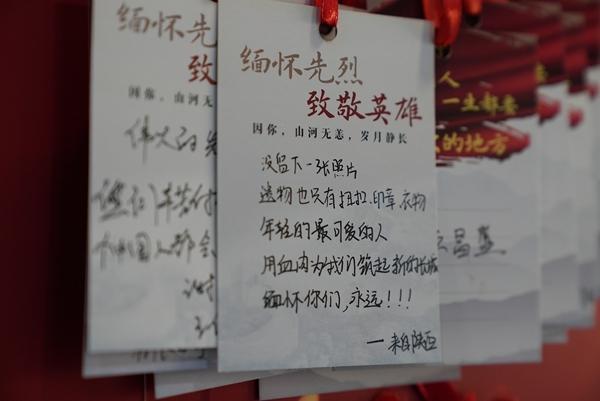 缅怀先烈
致敬英雄
因你，山河无恙，岁月静长
没留下一张照片
遗物也只有扭扣、印章、衣物
年轻的最可爱的人
用血肉为我们筑起新的长城
缅怀你们，永远!!!
一来自陕西
缅怀先
致
因你，山河无
伟大的
中国人都会
人
一生都要
的地方